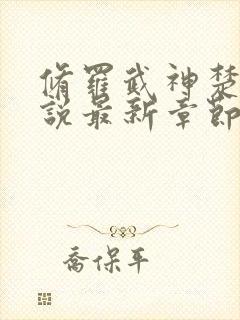 脩羅武神楚
說最新章節
喬保平